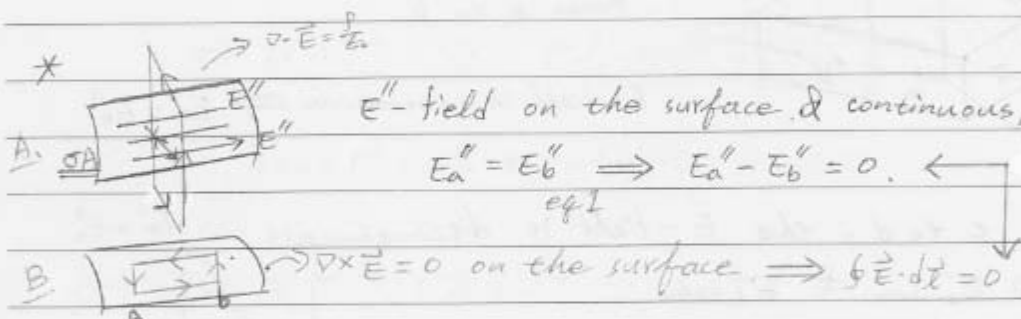 * ∇·E⃗ = ρ/ε₀
E″ E″-field on the surface & continuous,
A. σA E″ E″ₐ = E″_b ⟹ E″ₐ - E″_b = 0. ←
eq1
B ∇×E⃗ = 0 on the surface. ⟹ ∮E⃗·dl⃗ = 0
a b